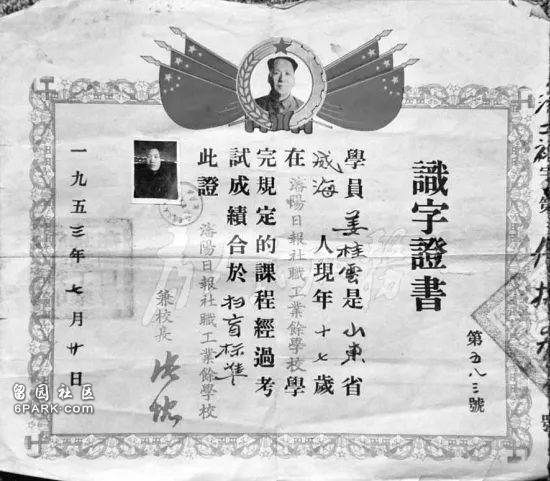 識字證書
第五八三號
學員姜桂雲是山東省
威海人現年十七歲
在瀋陽日報社職工業餘學校學
完規定的課程經過考
試成績合於扫盲标準
此證
瀋陽日報社職工業餘學校
兼校長
一九五三年七月廿日
留园社区
6PARK.COM